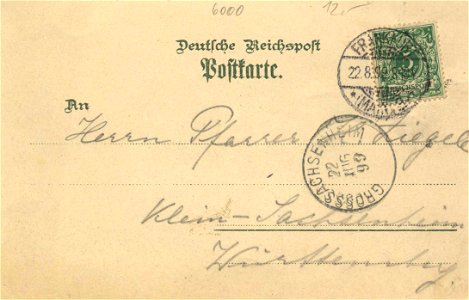 6000 12.-
Deutsche Reichspost
Postkarte.
An
Herrn Pfarrer Ziegele
Klein-Sachsenheim
Württemberg.
FRANKFURT
22.8.99
*(MAIN)
GROSSSACHSENHEIM
22
AUG
99
5